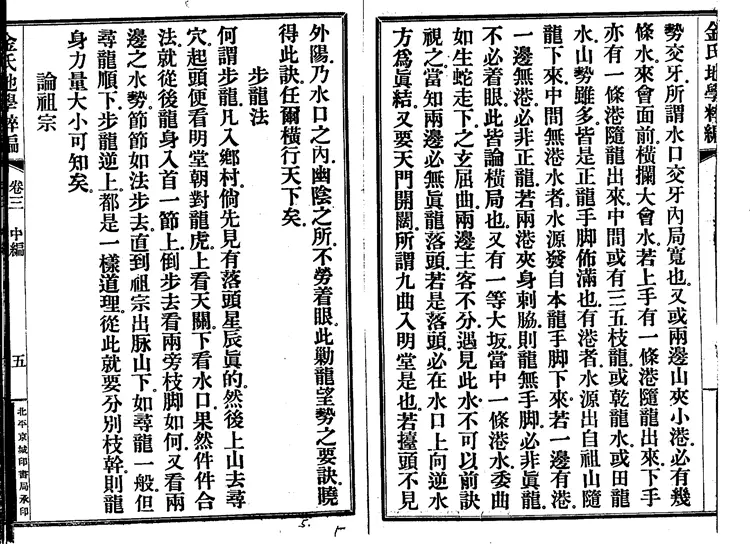 金氏地學粹編
勢交牙所謂水口交牙內局寬也又或兩邊山夾小港必有幾
條水來會面前橫攔大會水若上手有一條港隨龍出來下手
亦有一條港隨龍出來中間或有三五枝龍或乾龍水或田龍
水山勢雖多皆是正龍手脚佈滿也有港者水源出自祖山隨
龍下來中間無港水者水源發自本龍手脚下來若一邊有港
一邊無港必非正龍若兩港夾身刺脇則龍無手脚必非眞龍
不必着眼此皆論橫局也又有一等大坂當中一條港水委曲
如生蛇走下之玄屈曲兩邊主客不分遇見此水不可以前訣
視之當知兩邊必無眞龍落頭若是落頭必在水口上向逆水
方爲眞結又要天門開闊所謂九曲入明堂是也若擡頭不見
外陽乃水口之內幽陰之所不勞着眼此勦龍望勢之要訣曉
得此訣任爾橫行天下矣
步龍法
何謂步龍凡入鄉村倘先見有落頭星辰眞的然後上山去尋
穴起頭便看明堂朝對龍虎上看天關下看水口果然件件合
法就從後龍身入首一節上倒步去看兩旁枝脚如何又看兩
邊之水勢節節如法步去直到祖宗出脉山下如尋龍一般但
尋龍順下步龍逆上都是一樣道理從此就要分別枝幹則龍
身力量大小可知矣
論祖宗
金氏地學粹編
卷三
中編
五
北平京城印書局承印
5.